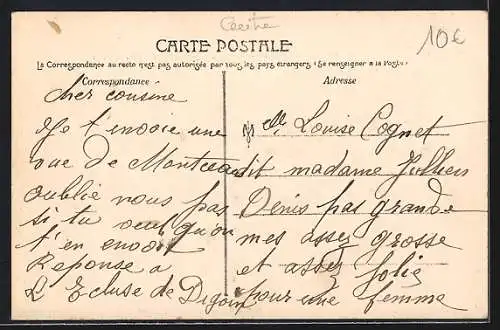 10€
CARTE POSTALE
La Correspondance au recto n'est pas autorisée par tous les pays étrangers (Se renseigner à la Poste)
Correspondance
Adresse
cher cousine
Je t'envoie une
vue de Montceau
oublie nous pas
si tu veut qu'on
t'en envoit
Reponse a
L Ecluse de Digoin
Melle Louise Cognet
dit madame
Denis pas grande
mes assez grosse
et assez jolie
pour une femme